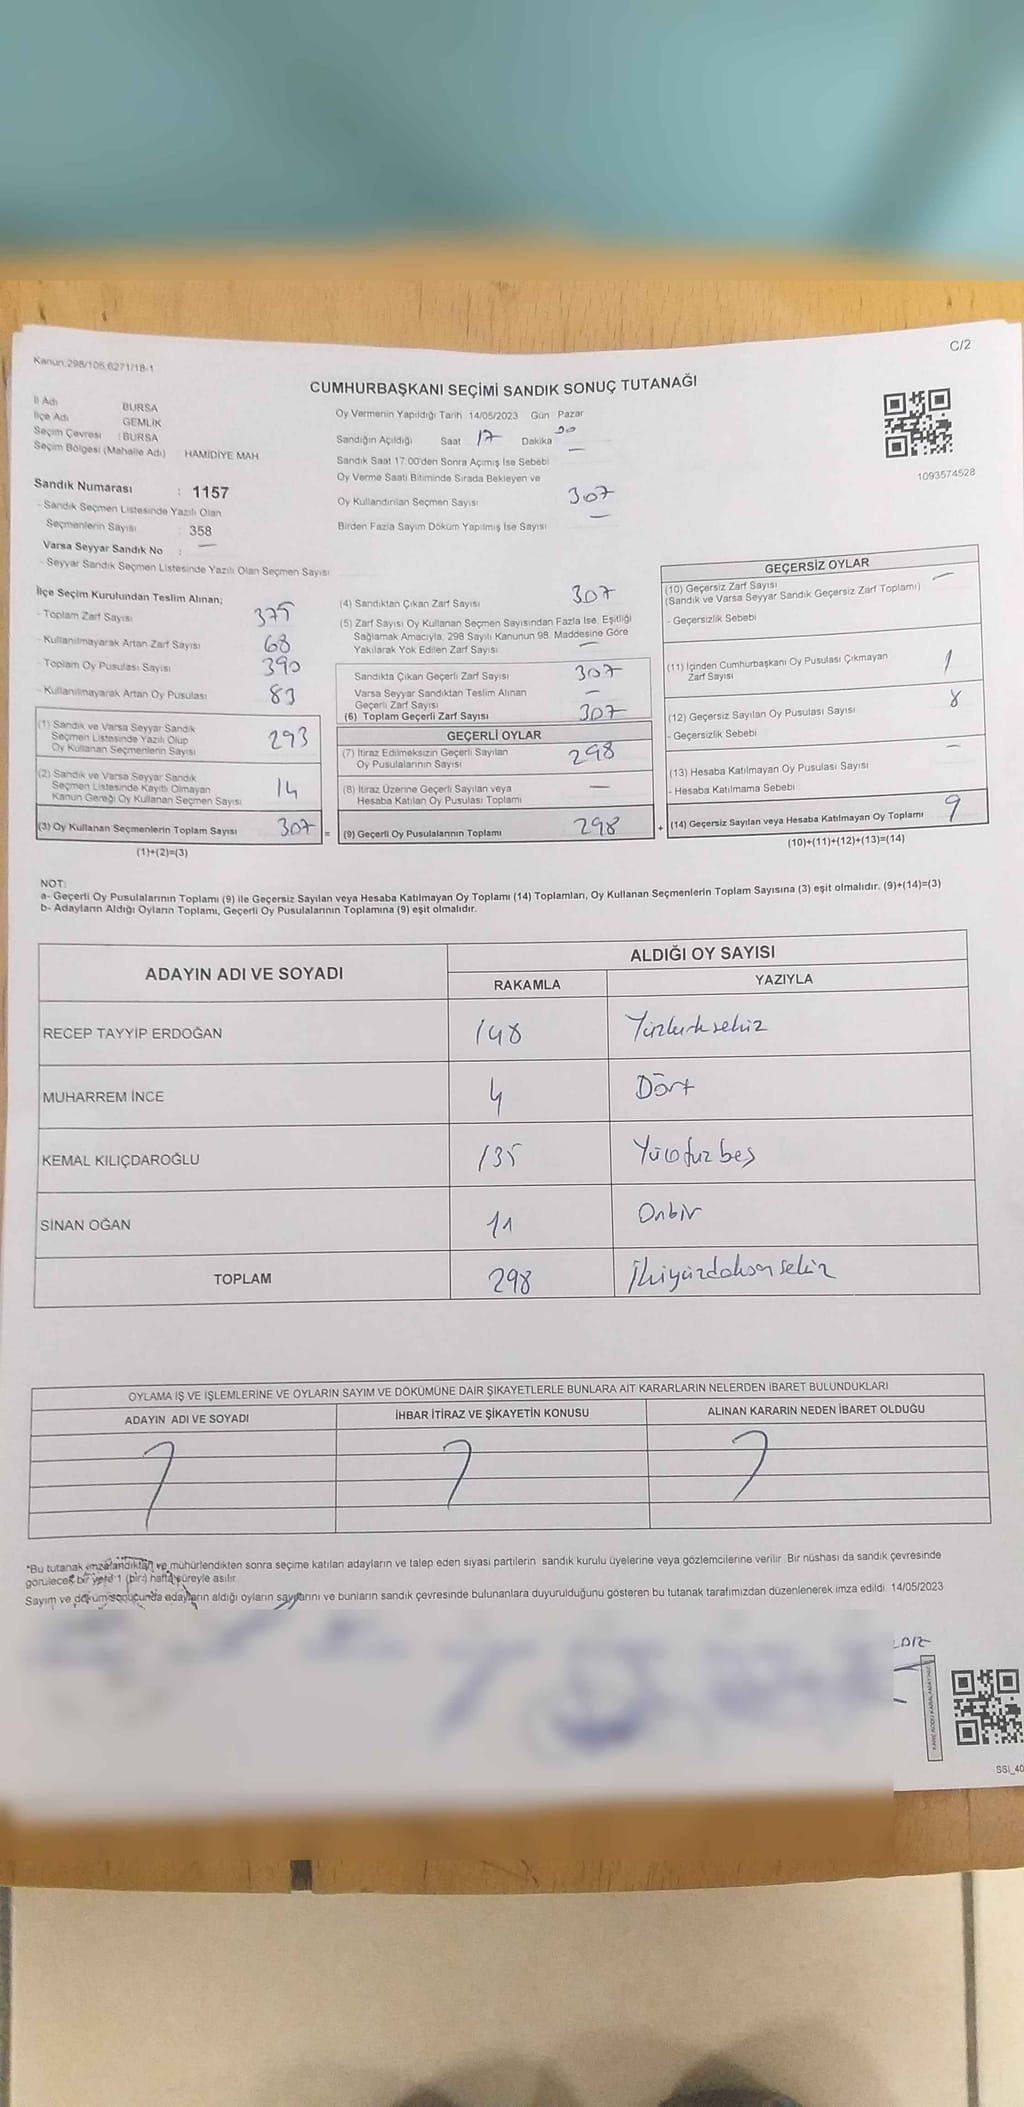 C/2
Kanun:298/105,6271/18-1
CUMHURBAŞKANI SEÇİMİ SANDIK SONUÇ TUTANAĞI
İl Adı BURSA
İlçe Adı GEMLİK
Seçim Çevresi : BURSA
Seçim Bölgesi (Mahalle Adı) HAMİDİYE MAH
Sandık Numarası : 1157
- Sandık Seçmen Listesinde Yazılı Olan
Seçmenlerin Sayısı : 358
Varsa Seyyar Sandık No : —
- Seyyar Sandık Seçmen Listesinde Yazılı Olan Seçmen Sayısı
Oy Vermenin Yapıldığı Tarih 14/05/2023 Gün Pazar
Sandığın Açıldığı Saat 17 Dakika
Sandık Saat 17:00'den Sonra Açımış İse Sebebi —
Oy Verme Saati Bitiminde Sırada Bekleyen ve
Oy Kullandırılan Seçmen Sayısı 307
Birden Fazla Sayım Döküm Yapılmış İse Sayısı —
1093574528
İlçe Seçim Kurulundan Teslim Alınan;
- Toplam Zarf Sayısı 375
- Kullanılmayarak Artan Zarf Sayısı 68
- Toplam Oy Pusulası Sayısı 390
- Kullanılmayarak Artan Oy Pusulası 83
(1) Sandık ve Varsa Seyyar Sandık
Seçmen Listesinde Yazılı Olup
Oy Kullanan Seçmenlerin Sayısı 293
(2) Sandık ve Varsa Seyyar Sandık
Seçmen Listesinde Kayıtlı Olmayan
Kanun Gereği Oy Kullanan Seçmen Sayısı 14
(3) Oy Kullanan Seçmenlerin Toplam Sayısı 307 =
(1)+(2)=(3)
(4) Sandıktan Çıkan Zarf Sayısı 307
(5) Zarf Sayısı Oy Kullanan Seçmen Sayısından Fazla İse, Eşitliği
Sağlamak Amacıyla, 298 Sayılı Kanunun 98. Maddesine Göre
Yakılarak Yok Edilen Zarf Sayısı —
Sandıkta Çıkan Geçerli Zarf Sayısı 307
Varsa Seyyar Sandıktan Teslim Alınan
Geçerli Zarf Sayısı —
(6) Toplam Geçerli Zarf Sayısı 307
GEÇERLİ OYLAR
(7) İtiraz Edilmeksizin Geçerli Sayılan
Oy Pusulalarının Sayısı 298
(8) İtiraz Üzerine Geçerli Sayılan veya
Hesaba Katılan Oy Pusulası Toplamı —
(9) Geçerli Oy Pusulalarının Toplamı 298 +
GEÇERSİZ OYLAR
(10) Geçersiz Zarf Sayısı —
(Sandık ve Varsa Seyyar Sandık Geçersiz Zarf Toplamı)
- Geçersizlik Sebebi
(11) İçinden Cumhurbaşkanı Oy Pusulası Çıkmayan
Zarf Sayısı 1
(12) Geçersiz Sayılan Oy Pusulası Sayısı 8
- Geçersizlik Sebebi
(13) Hesaba Katılmayan Oy Pusulası Sayısı —
- Hesaba Katılmama Sebebi
(14) Geçersiz Sayılan veya Hesaba Katılmayan Oy Toplamı 9
(10)+(11)+(12)+(13)=(14)
NOT:
a- Geçerli Oy Pusulalarının Toplamı (9) ile Geçersiz Sayılan veya Hesaba Katılmayan Oy Toplamı (14) Toplamları, Oy Kullanan Seçmenlerin Toplam Sayısına (3) eşit olmalıdır. (9)+(14)=(3)
b- Adayların Aldığı Oyların Toplamı, Geçerli Oy Pusulalarının Toplamına (9) eşit olmalıdır.
ADAYIN ADI VE SOYADI ALDIĞI OY SAYISI
RAKAMLA YAZIYLA
RECEP TAYYİP ERDOĞAN 148 Yüzkırksekiz
MUHARREM İNCE 4 Dört
KEMAL KILIÇDAROĞLU 135 Yüzotuzbeş
SİNAN OĞAN 11 Onbir
TOPLAM 298 İkiyüzdoksansekiz
OYLAMA İŞ VE İŞLEMLERİNE VE OYLARIN SAYIM VE DÖKÜMÜNE DAİR ŞİKAYETLERLE BUNLARA AİT KARARLARIN NELERDEN İBARET BULUNDUKLARI
ADAYIN ADI VE SOYADI İHBAR İTİRAZ VE ŞİKAYETİN KONUSU ALINAN KARARIN NEDEN İBARET OLDUĞU
*Bu tutanak imzalandıktan ve mühürlendikten sonra seçime katılan adayların ve talep eden siyasi partilerin sandık kurulu üyelerine veya gözlemcilerine verilir. Bir nüshası da sandık çevresinde
görülecek bir yere 1 (bir) hafta süreyle asılır.
Sayım ve döküm sonucunda adayların aldığı oyların sayılarını ve bunların sandık çevresinde bulunanlara duyurulduğunu gösteren bu tutanak tarafımızdan düzenlenerek imza edildi. 14/05/2023
KARE KODU KARALAMAYINIZ
SSI_40